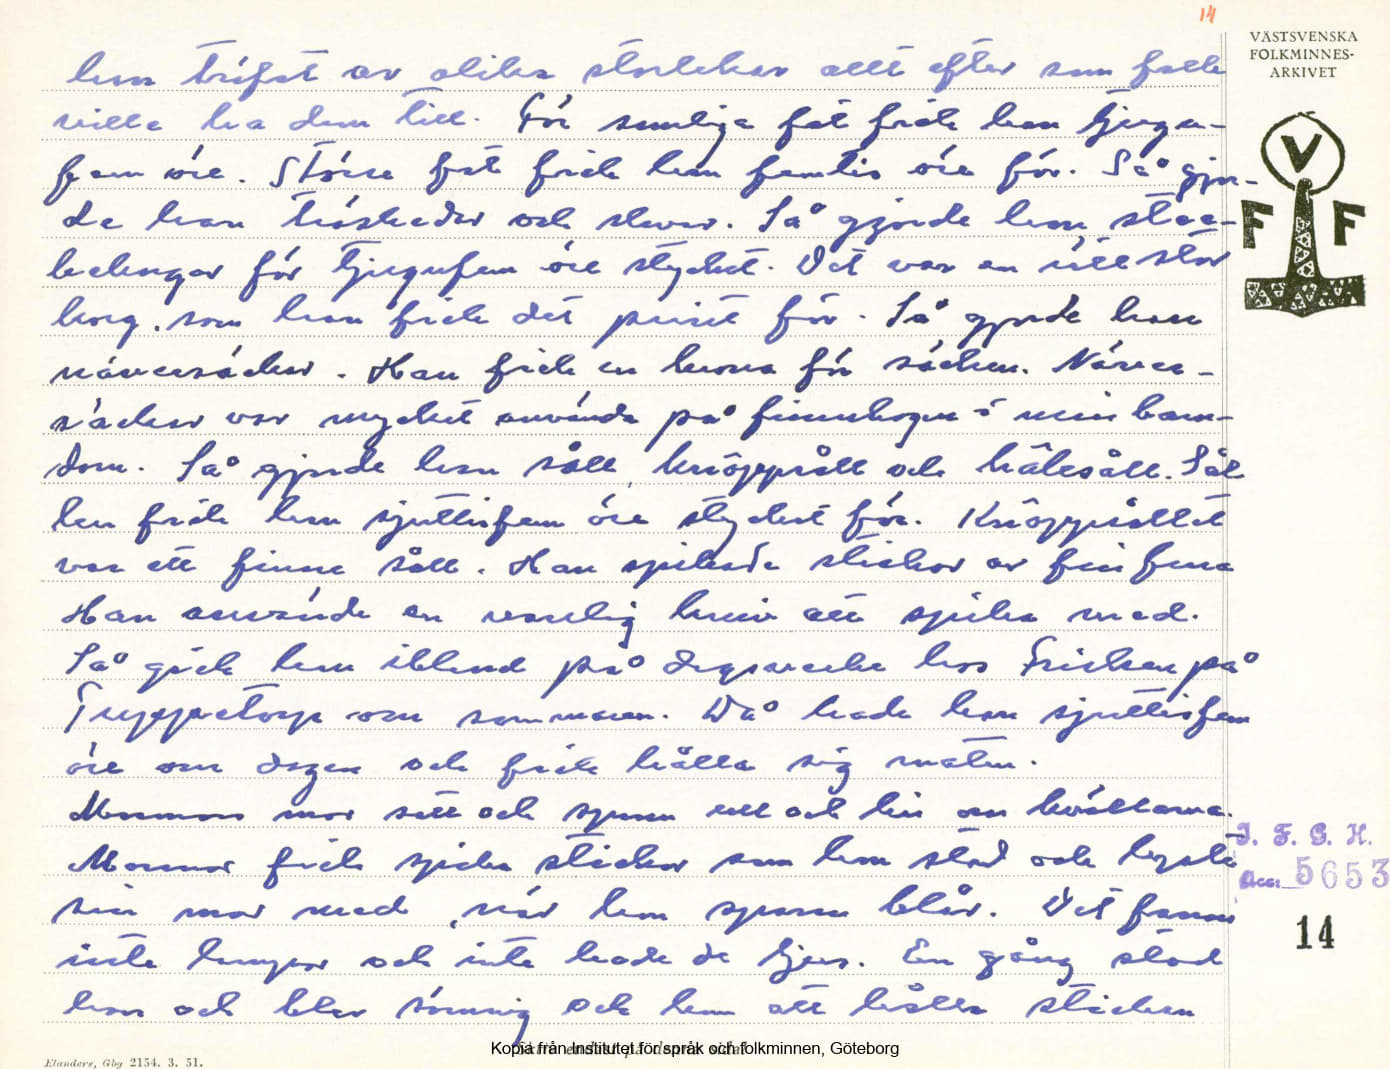 14
VÄSTSVENSKA
FOLKMINNES-
ARKIVET
V
F F
han träfat av olika storlekar allt efter som folk
ville ha dem till. För somliga fat fick han tjugu-
fem öre. Större fat fick han femtio öre för. Så gjor-
de han träskedar och slevar. Så gjorde han
för tjugufem öre stycket. Det var en rätt stor
korg, som han fick det priset för. Så gjorde han
näversäckar. Han fick en krona för säcken. Näver-
säckar var mycket använda på finnskogen i min barn-
dom. Så gjorde han såll, kröppsåll och hålesåll. Sål
len fick han sjuttifem öre stycket för. Kröppsållet
var ett finare såll. Han spikade stickor av fin fura
Han använde en vanlig kniv att spika med.
Så gick han ibland på dagsverke hos Frisken på
Truppetorp om sommaren. Då hade han sjuttifem
öre om dagen och fick hålla sig maten.
Mormors mor satt och spann ull och lin om kvällarna.
Mormor fick spika stickor som hon stod och lyste
sin mor med, när hon spann blår. Det fanns
inte lampor och inte hade de ljus. En gång stod
hon och blev sömnig och kom att hålla stickan
I. F. G. H.
Acc. 5653
14
Kopia från Institutet för språk och folkminnen, Göteborg
Elanders, Gbg 2154. 3. 51.